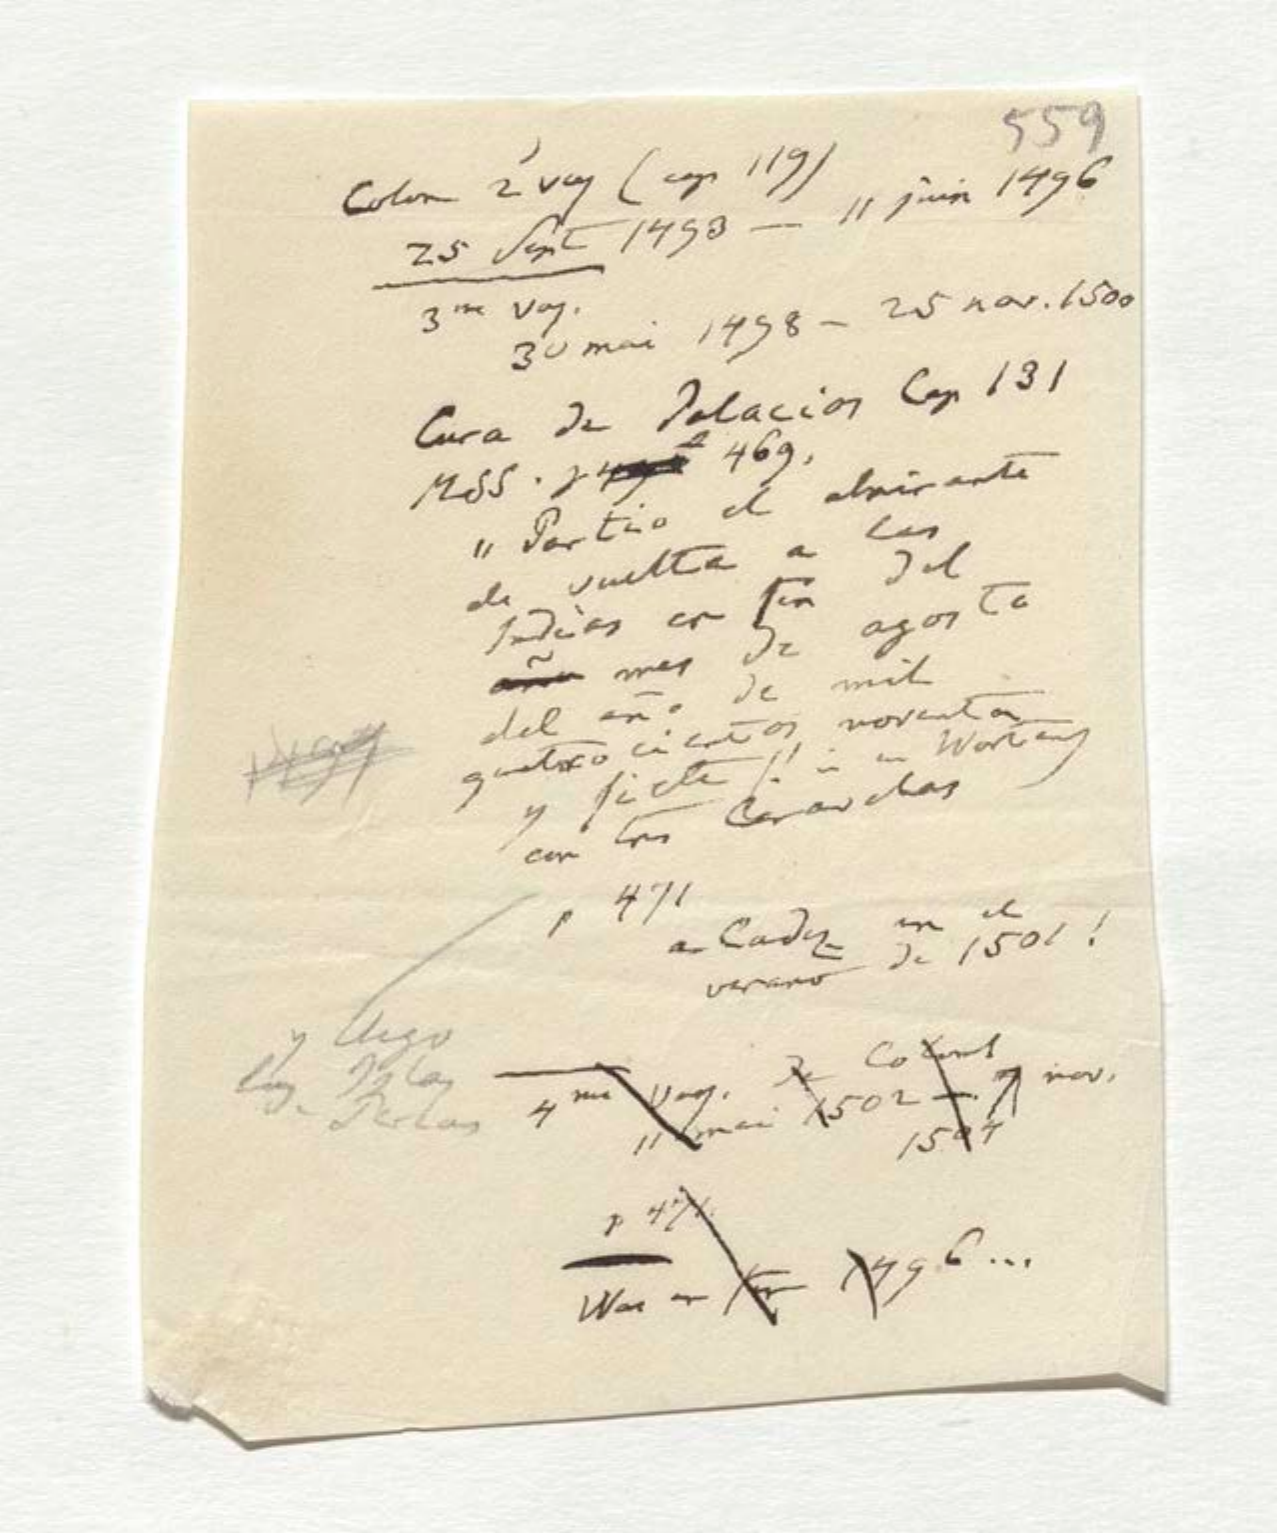 559
Colon 2 voy (cap 119)
25 Sept 1493 — 11 juin 1496
3me voy.
30 mai 1498 – 25 nov. 1500
Cura de Palacios Cap 131
MSS. p 469.
"Partio el almirante
de vuelta a las
Indias en fin del
año mes de agosto
del año de mil
quatrocientos noventa
y siete !! in Worten
con tres Caravelas
p 471
a Cadiz en el
verano de 1501!
y llego
Perlas
4me voy. de Colomb
11 mai 1502 — 7 nov.
1504
p 471.
War er 1496...